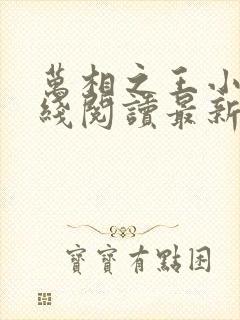 萬相之王小
綫閱讀最新
寶寶有點困